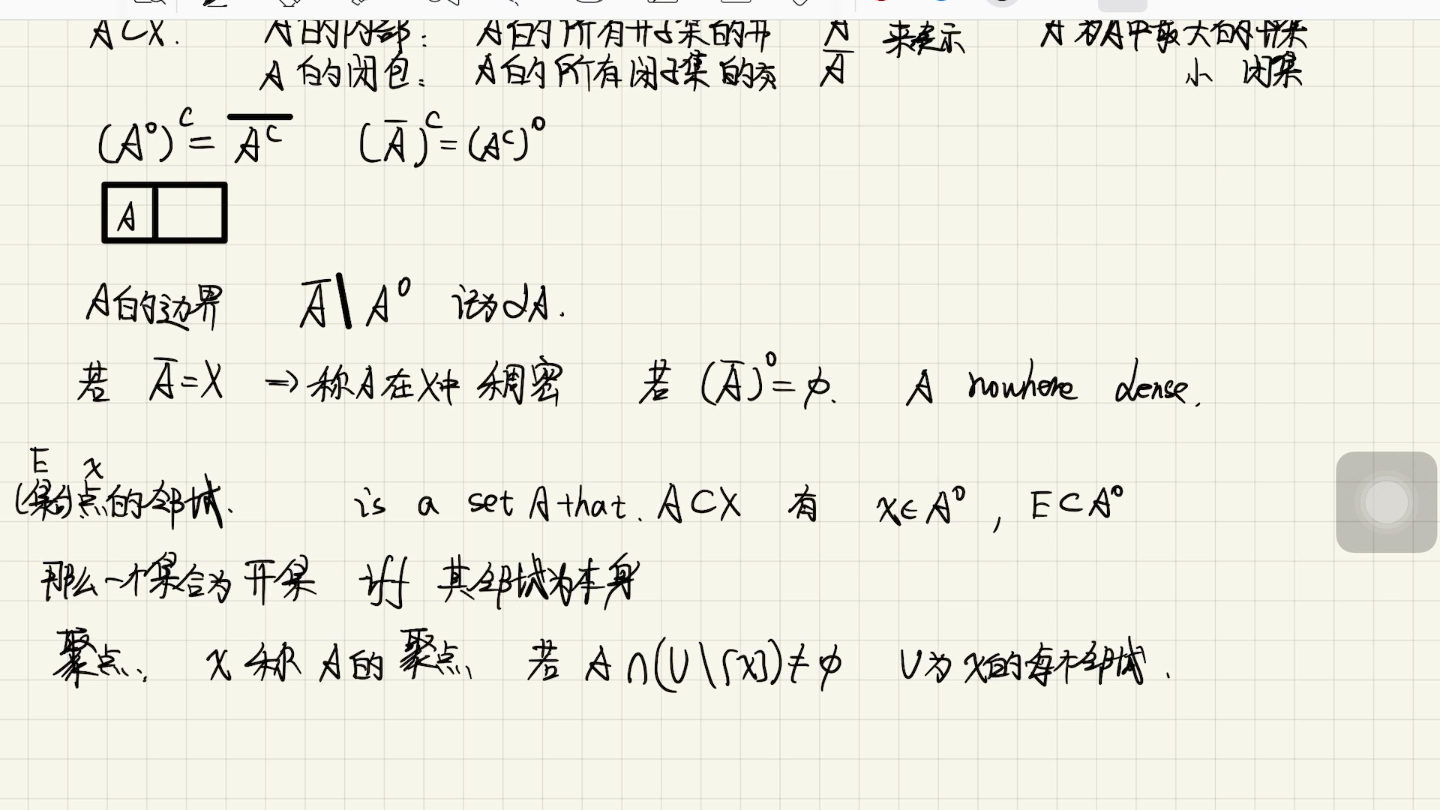 A⊂X. A的内部: A的所有开子集的并 来表示 A°为A中最大的开集
A的闭包: A的所有闭子集的交 A̅ 小 闭集
(A°)ᶜ = A̅ᶜ̅ (A̅)ᶜ = (Aᶜ)°
A
A的边界 A̅ \ A° 记为∂A.
若 A̅ = X ⇒ 称A在X中稠密 若 (A̅)° = ϕ. A nowhere dense.
E x
(集合)点的邻域. is a set A that. A⊂X 有 x∈A°, E⊂A°
那么一个集合为开集 iff 其邻域为本身
聚点. x称A的聚点 若 A∩(U\{x})≠ϕ U为x的每个邻域.